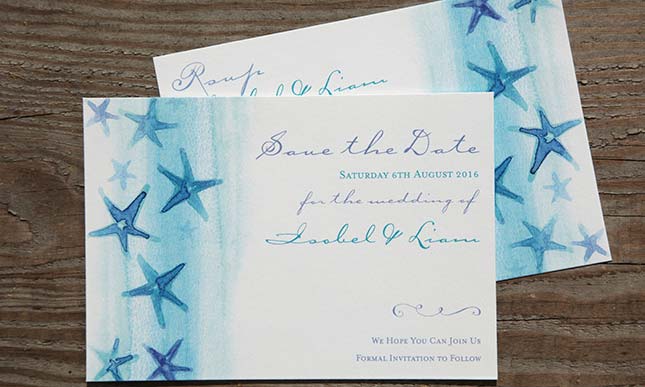 Rsvp
Isobel & Liam
Save the Date
Saturday 6th August 2016
for the wedding of
Isobel & Liam
We Hope You Can Join Us
Formal Invitation to Follow